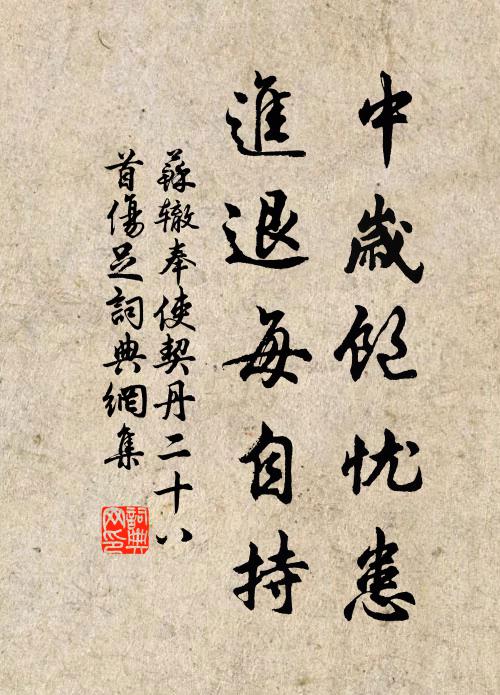 中歲飽忧患
進退每自持
蘇轍奉使契丹二十八
首傷足詞典網集
詞典
网印